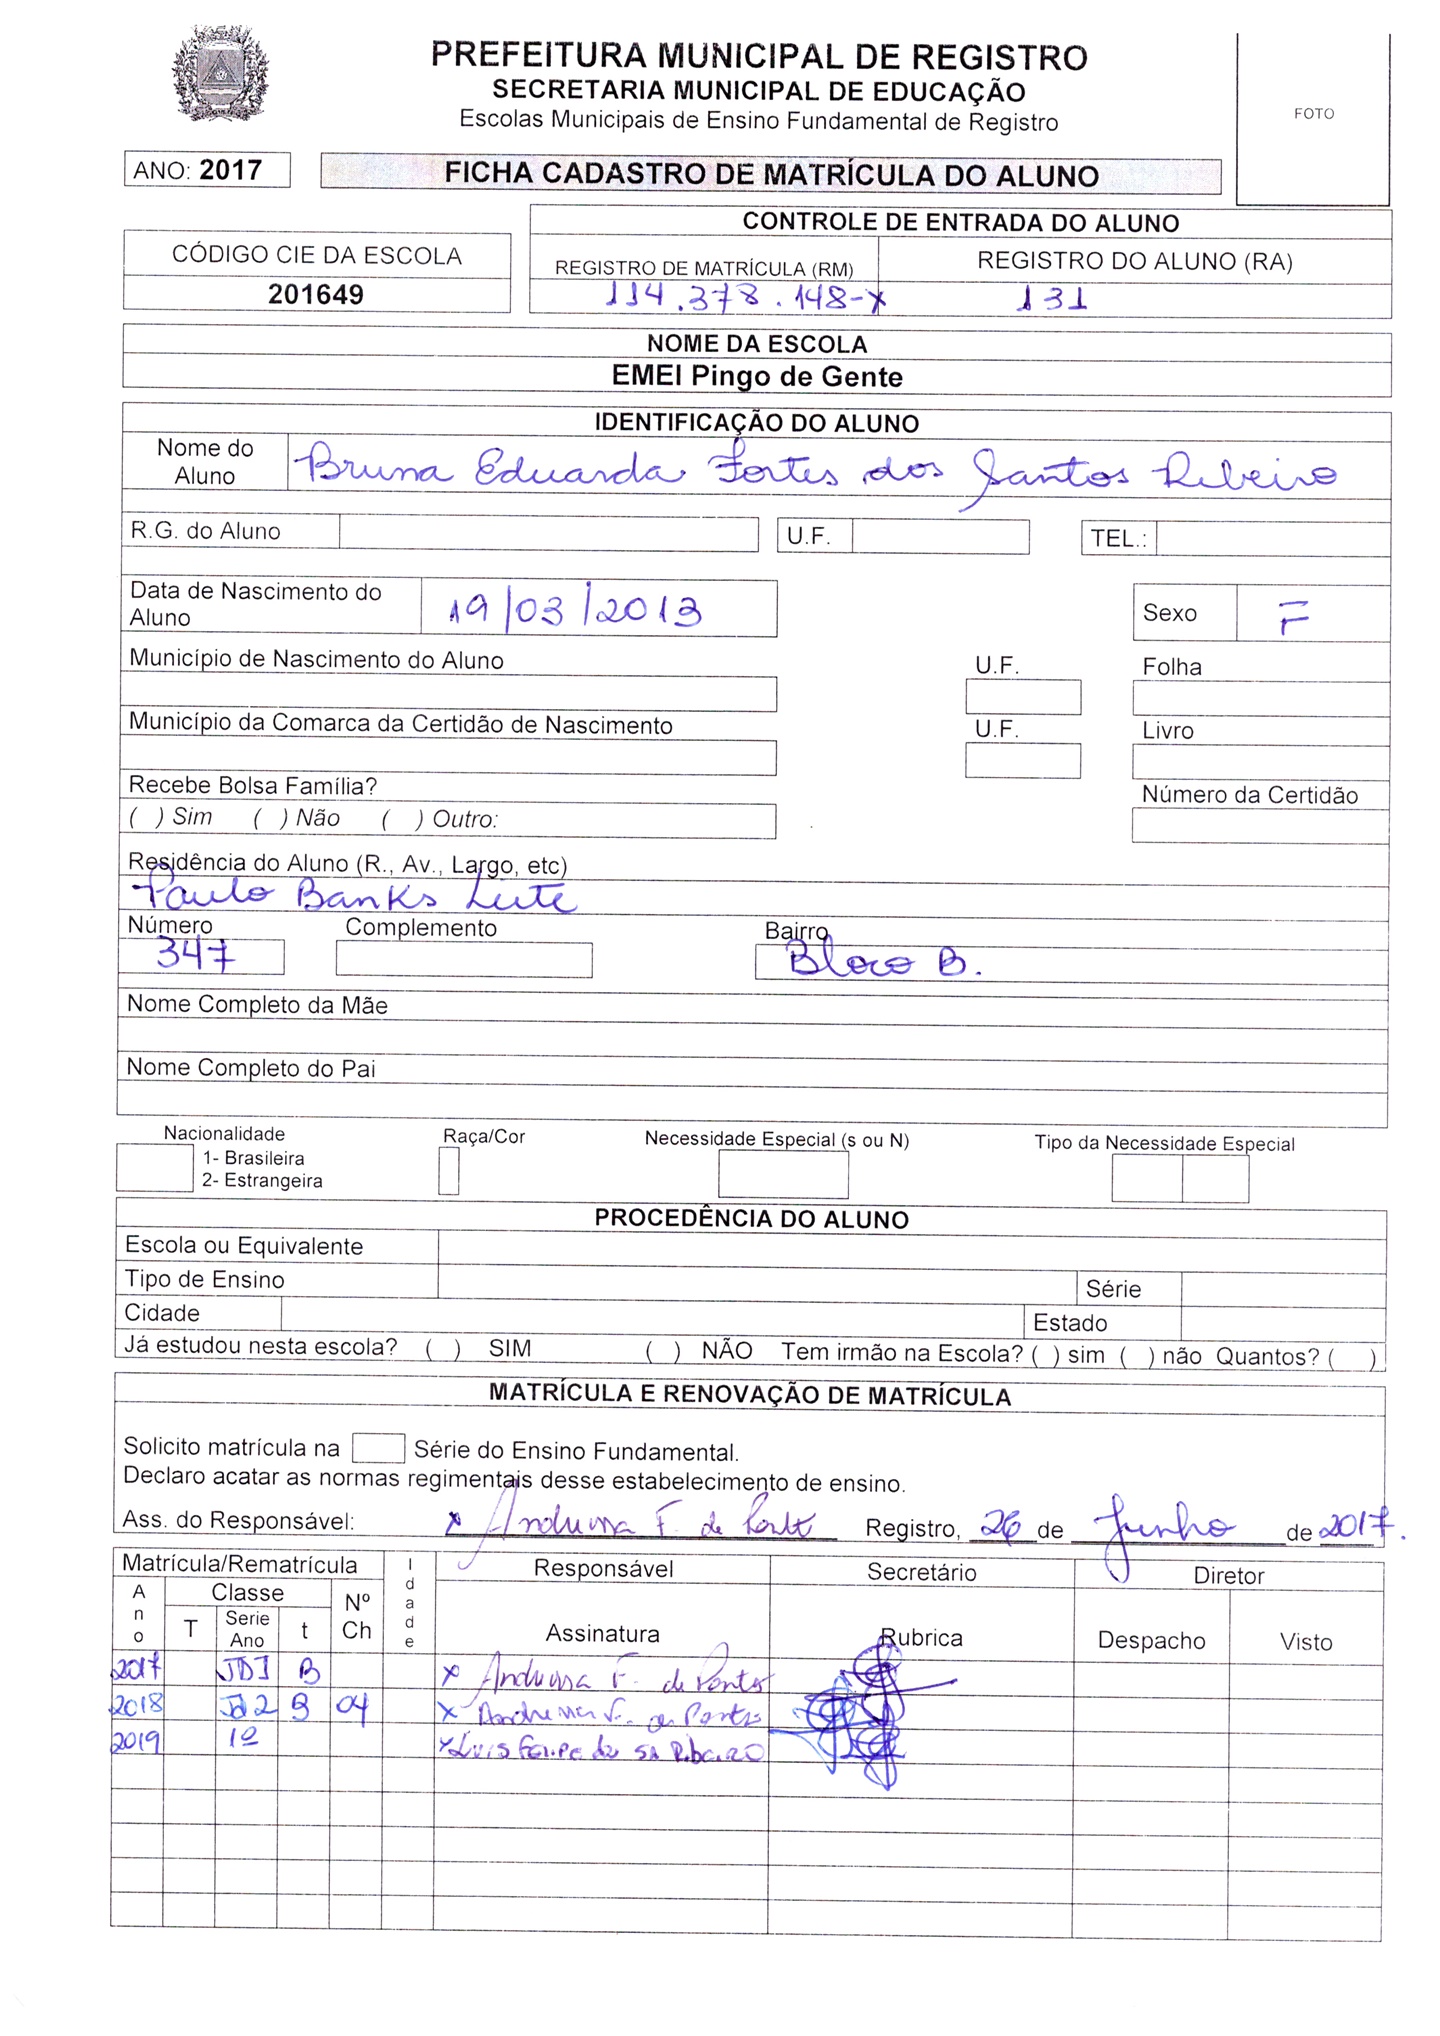 PREFEITURA MUNICIPAL DE REGISTRO
SECRETARIA MUNICIPAL DE EDUCAÇÃO
Escolas Municipais de Ensino Fundamental de Registro
FOTO
ANO: 2017
FICHA CADASTRO DE MATRÍCULA DO ALUNO
CONTROLE DE ENTRADA DO ALUNO
CÓDIGO CIE DA ESCOLA
REGISTRO DE MATRÍCULA (RM) REGISTRO DO ALUNO (RA)
201649
114.378.148-x 131
NOME DA ESCOLA
EMEI Pingo de Gente
IDENTIFICAÇÃO DO ALUNO
Nome do Aluno Bruna Eduarda Fortes dos Santos Ribeiro
R.G. do Aluno U.F. TEL.:
Data de Nascimento do Aluno 19/03/2013 Sexo F
Município de Nascimento do Aluno U.F. Folha
Município da Comarca da Certidão de Nascimento U.F. Livro
Recebe Bolsa Família? Número da Certidão
( ) Sim ( ) Não ( ) Outro:
Residência do Aluno (R., Av., Largo, etc)
Paulo Banks Leite
Número Complemento Bairro
347 Bloco B.
Nome Completo da Mãe
Nome Completo do Pai
Nacionalidade Raça/Cor Necessidade Especial (s ou N) Tipo da Necessidade Especial
1- Brasileira
2- Estrangeira
PROCEDÊNCIA DO ALUNO
Escola ou Equivalente
Tipo de Ensino Série
Cidade Estado
Já estudou nesta escola? ( ) SIM ( ) NÃO Tem irmão na Escola? ( ) sim ( ) não Quantos? ( )
MATRÍCULA E RENOVAÇÃO DE MATRÍCULA
Solicito matrícula na Série do Ensino Fundamental.
Declaro acatar as normas regimentais desse estabelecimento de ensino.
Ass. do Responsável: x F. de Registro, 26 de Junho de 2017.
Matrícula/Rematrícula Idade Responsável Secretário Diretor
Ano Classe Nº Ch
T Serie Ano t Assinatura Rubrica Despacho Visto
2017 JD1 B x F. de Pontes
2018 Jd2 B 04 x F. de Pontes
2019 1º x Luis Felipe Ribeiro